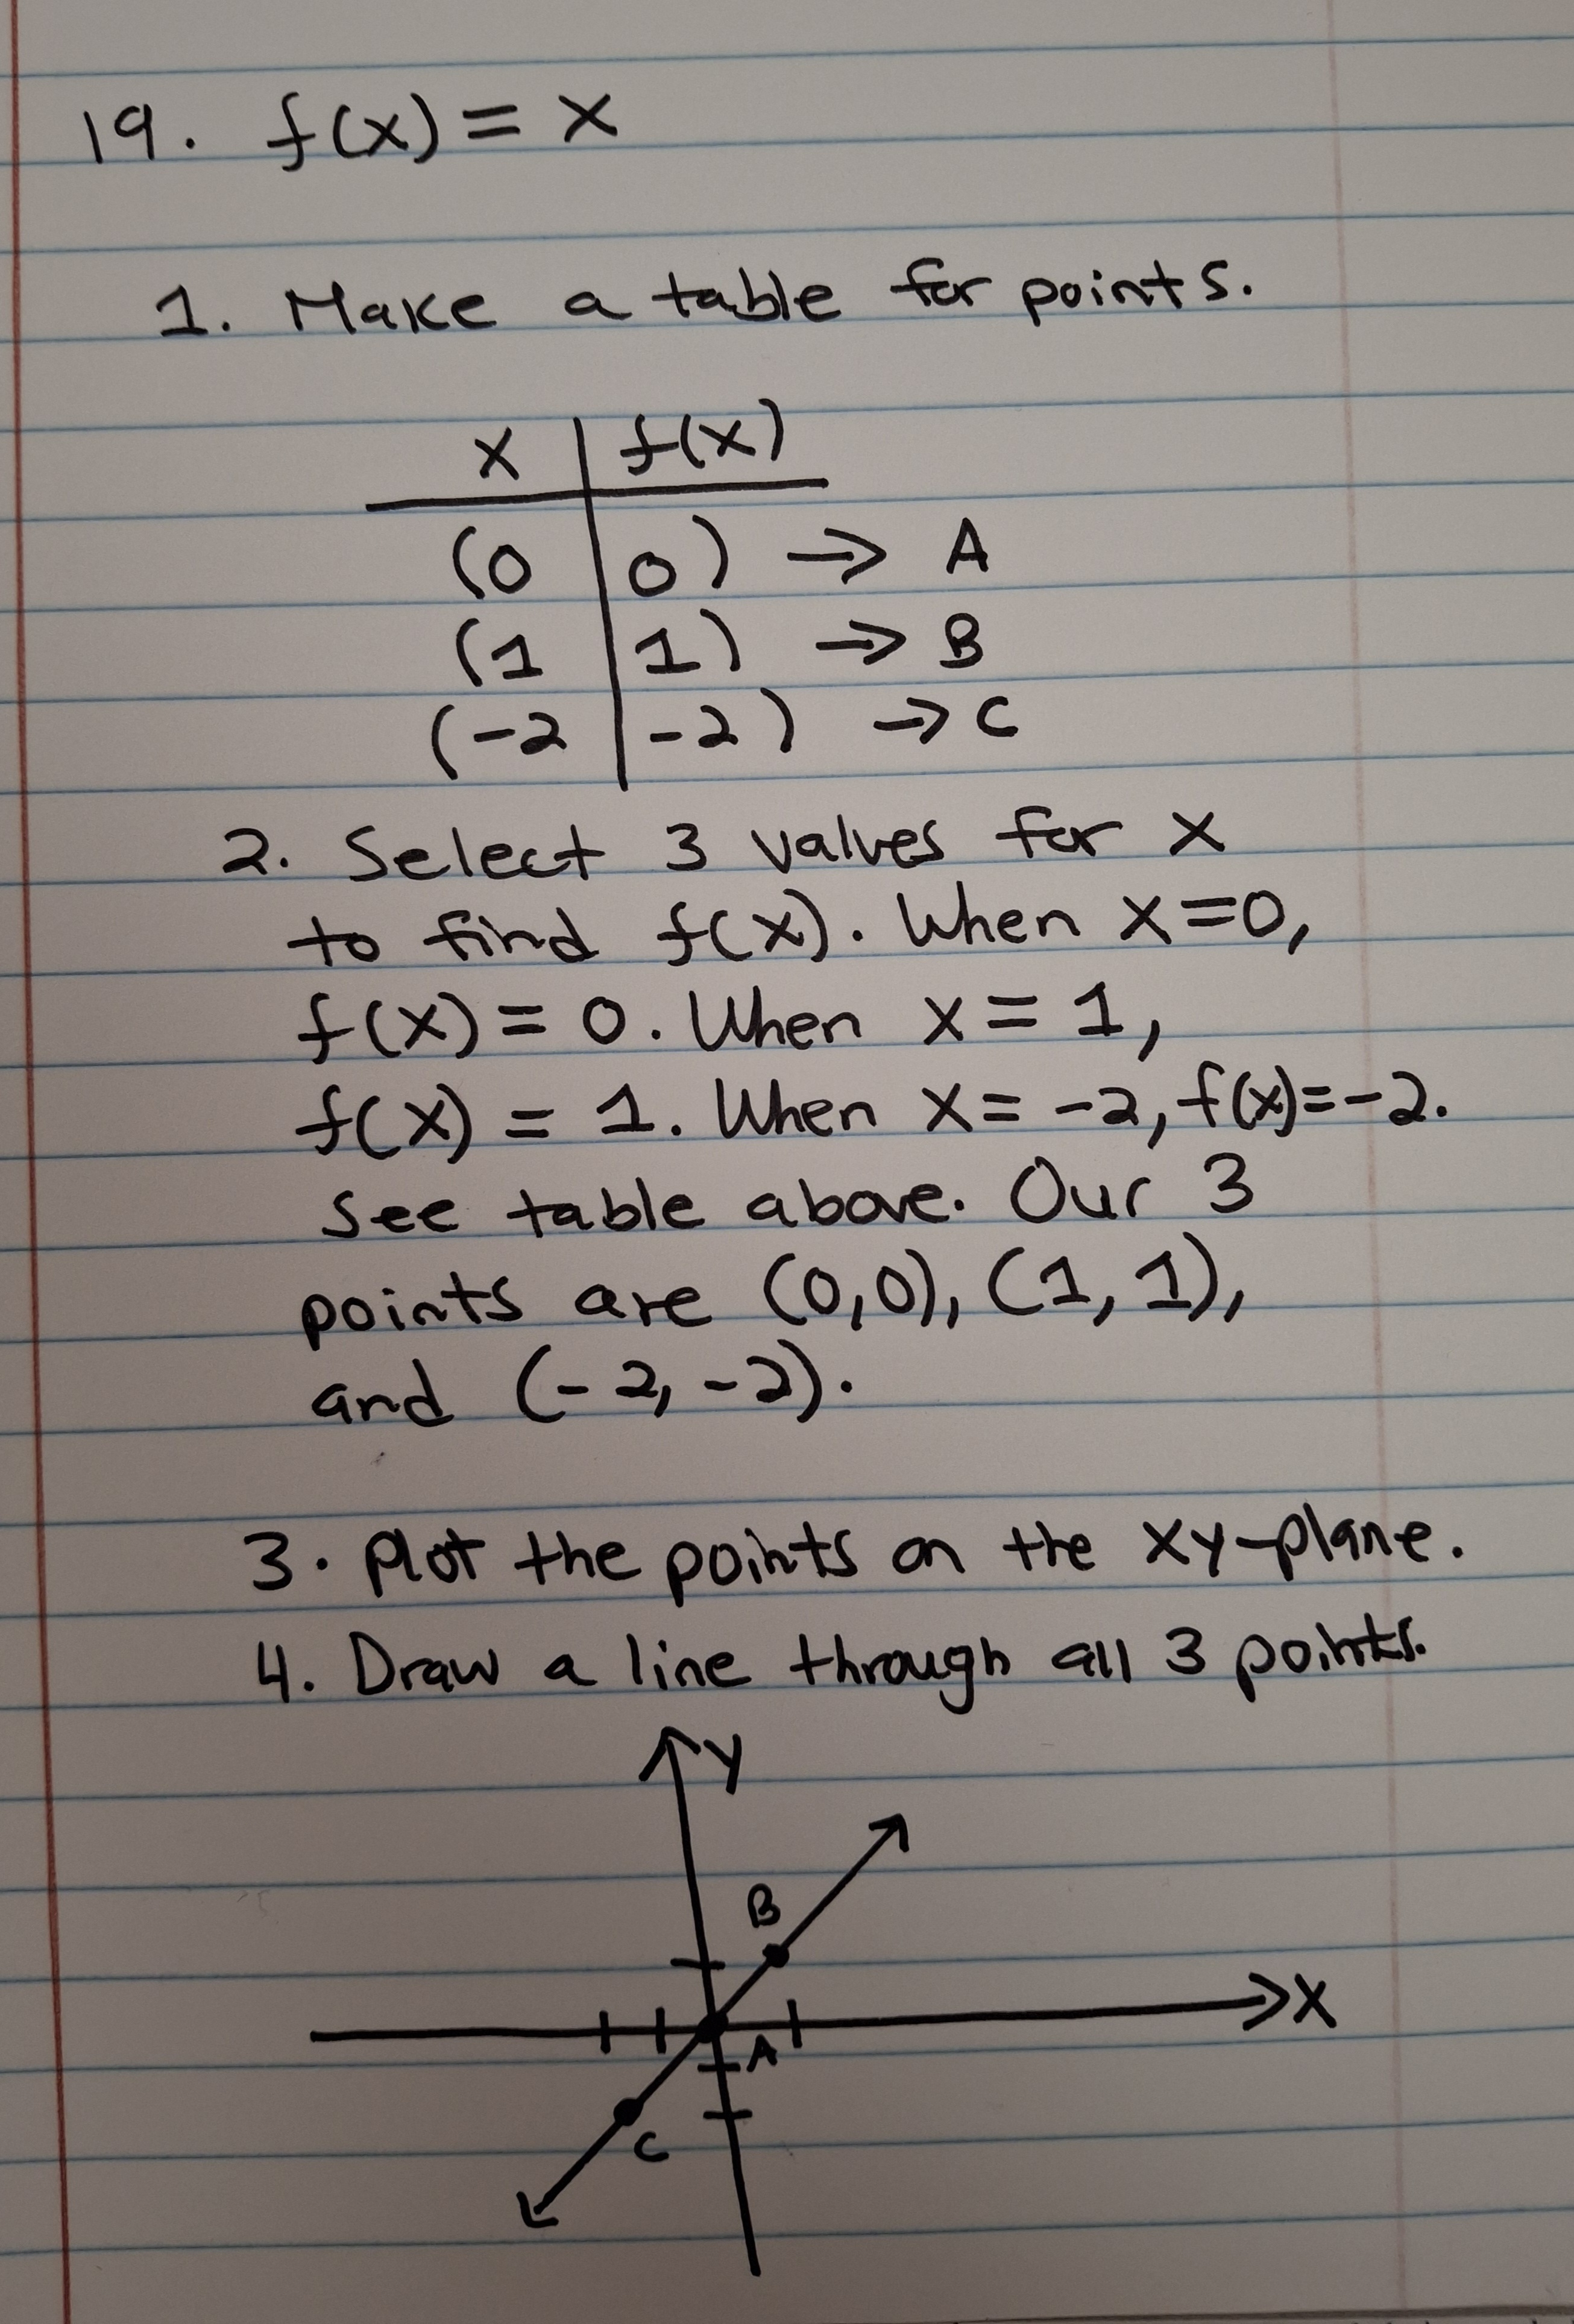 19. f(x) = x
1. Make a table for points.
x | f(x)
(0 | 0) → A
(1 | 1) → B
(-2 | -2) → C
2. Select 3 values for x
to find f(x). When x=0,
f(x) = 0. When x = 1,
f(x) = 1. When x = -2, f(x)=-2.
See table above. Our 3
points are (0,0), (1, 1),
and (-2, -2).
3. Plot the points on the xy-plane.
4. Draw a line through all 3 points.
y
B
x
A
C